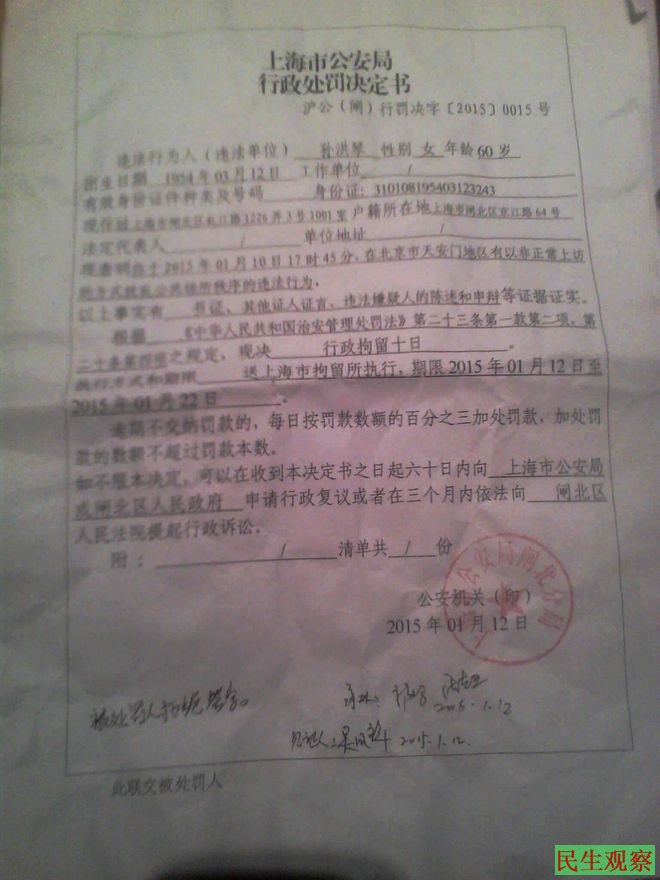 上海市公安局
行政处罚决定书
沪公（闸）行罚决字〔2015〕0015号
违法行为人（违法单位） 孙洪琴 性别 女 年龄 60岁
出生日期 1954年03月12日 工作单位 /
有效身份证件种类及号码 身份证：310108195403123243
现住址 上海市闸北区 路1226弄3号1001室 户籍所在地 上海市闸北区京江路64号
法定代表人 / 单位地址 /
现查明 于2015年01月10日17时45分，在北京市天安门地区有以非正常上访
的方式扰乱公共场所秩序的违法行为，
以上事实有 书证、其他证人证言、违法嫌疑人的陈述和申辩等证据证实。
根据 《中华人民共和国治安管理处罚法》第二十三条第一款第二项、第
二十条第四项之规定，现决 行政拘留十日 。
执行方式和期限 送上海市拘留所执行，期限2015年01月12日至
2015年01月22日 。
逾期不交纳罚款的，每日按罚款数额的百分之三加处罚款，加处罚
款的数额不超过罚款本数。
如不服本决定，可以在收到本决定书之日起六十日内向 上海市公安局
或闸北区人民政府 申请行政复议或者在三个月内依法向 闸北区
人民法院提起行政诉讼。
附： / 清单共 / 份
公安局闸北分局
公安机关（印）
2015年01月12日
被处罚人拒绝签字。
2015.1.12
见证人： 2015.1.12.
此联交被处罚人
民生观察